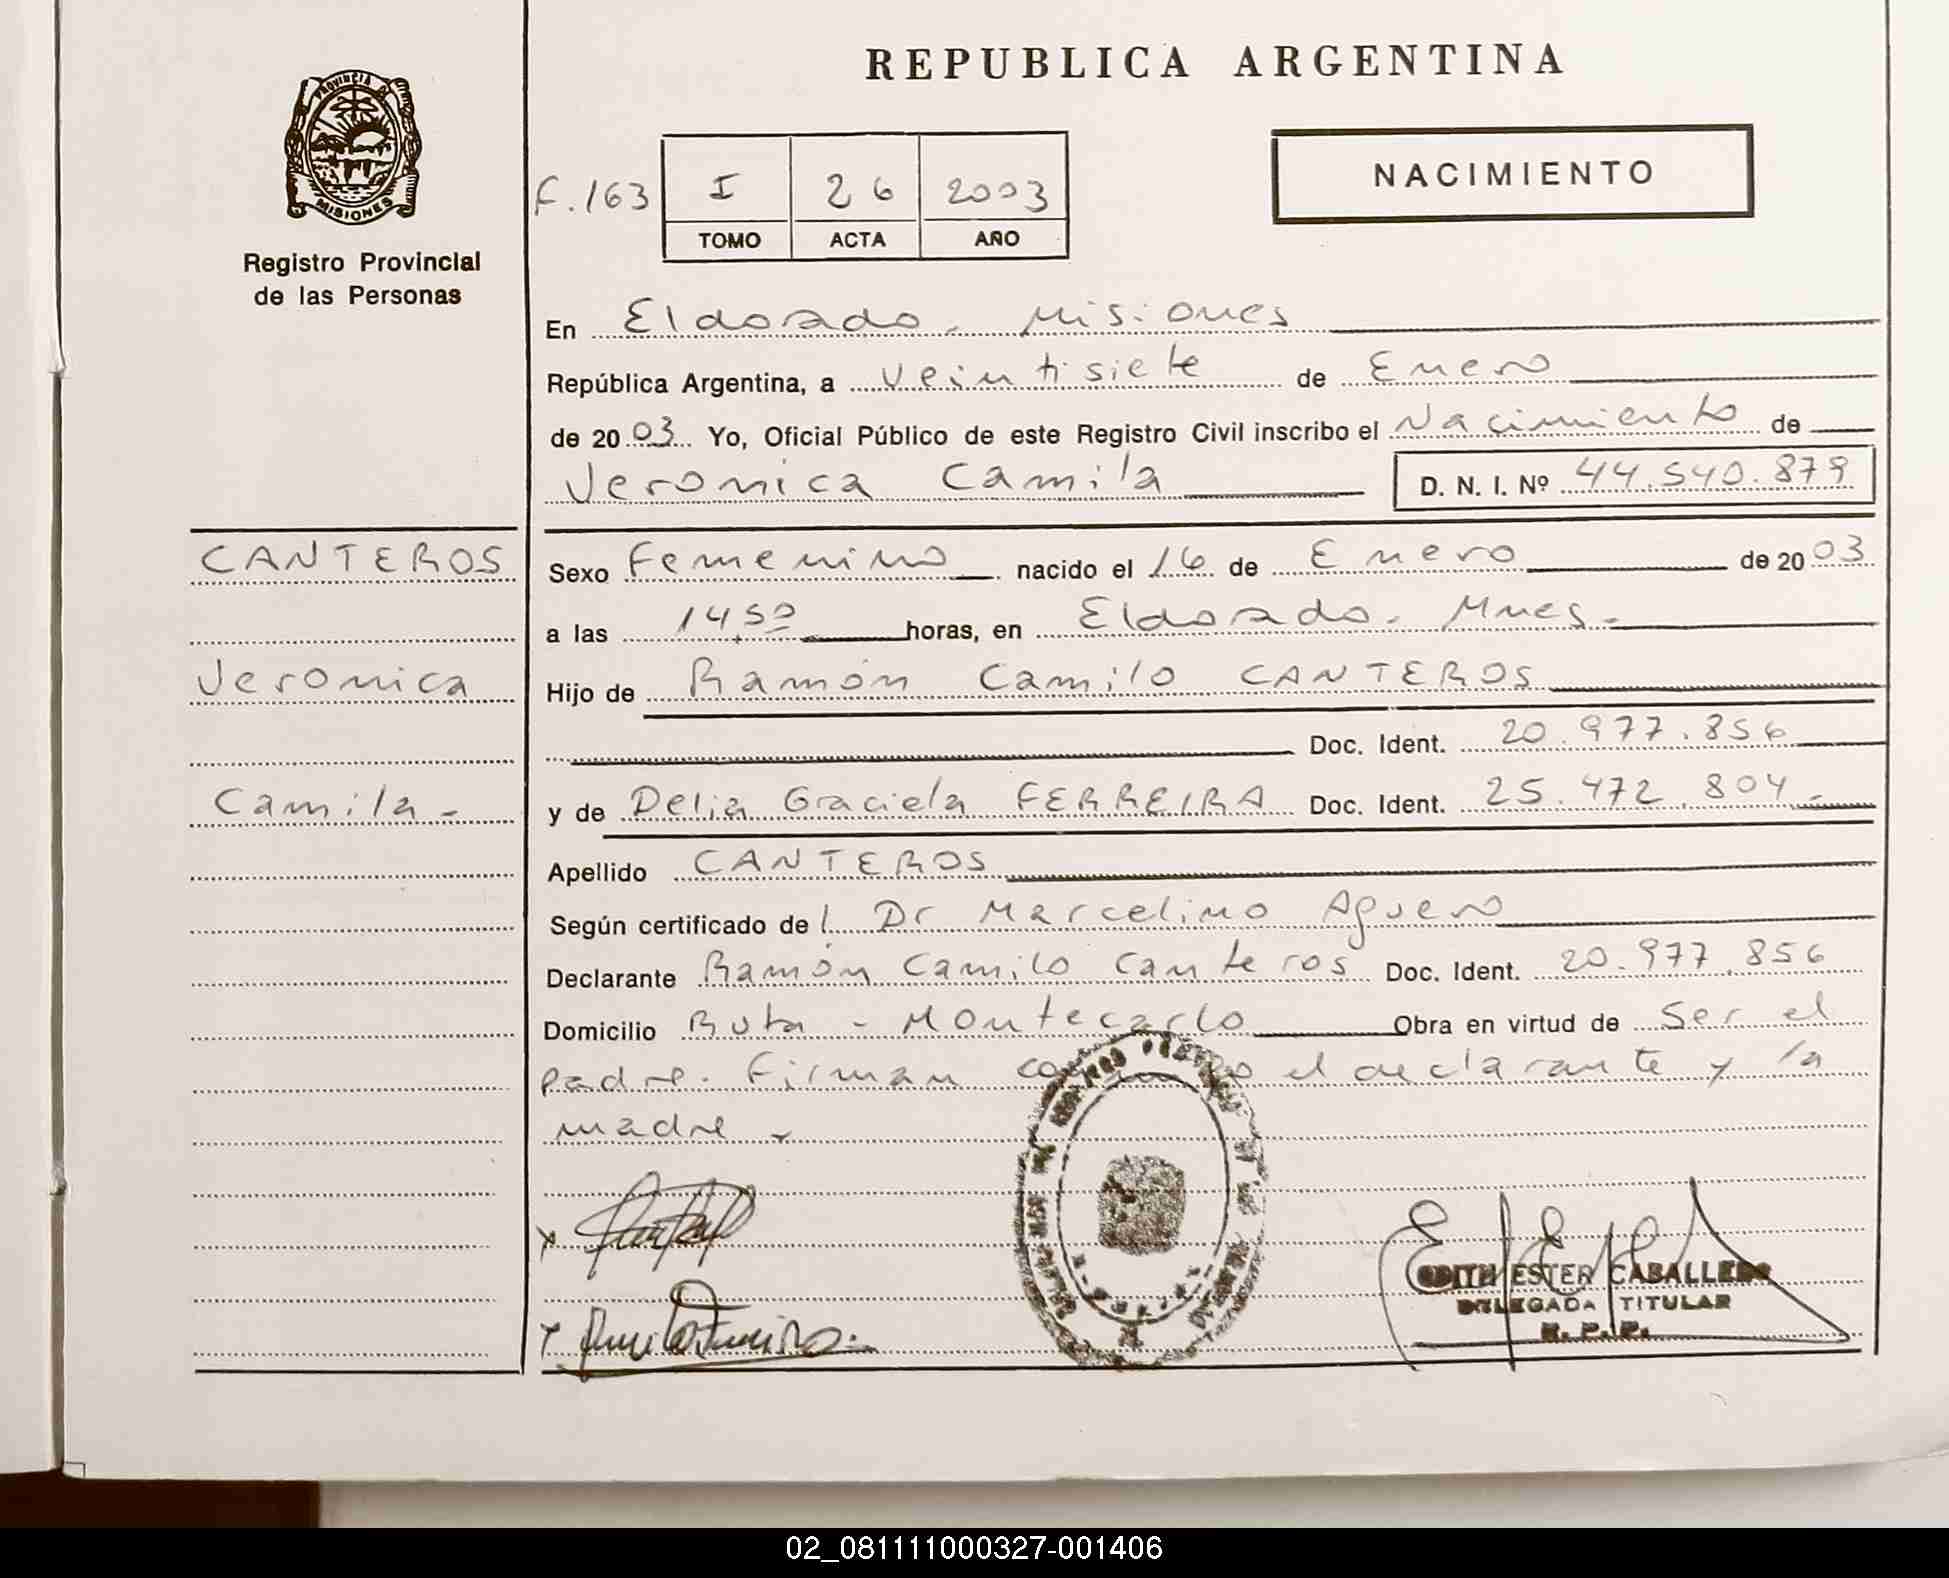 REPUBLICA ARGENTINA
PROVINCIA DE
MISIONES
Registro Provincial
de las Personas
NACIMIENTO
F. 163 I 26 2003
TOMO ACTA AÑO
En Eldorado. Misiones
República Argentina, a Veintisiete de Enero
de 2003 Yo, Oficial Público de este Registro Civil inscribo el Nacimiento de
Veronica Camila D. N. I. Nº 44.540.879
CANTEROS
Veronica
Camila -
Sexo Femenino nacido el 16 de Enero de 2003
a las 14,50 horas, en Eldorado. Mnes.
Hijo de Ramón Camilo CANTEROS
Doc. Ident. 20.977.856
y de Delia Graciela FERREIRA Doc. Ident. 25.472.804 -
Apellido CANTEROS
Según certificado del Dr Marcelino Aguero
Declarante Ramón Camilo Canteros Doc. Ident. 20.977.856
Domicilio Ruta - Montecarlo Obra en virtud de Ser el
padre. Firman el declarante y la
madre -
EDITH ESTER CABALLERO
DELEGADA TITULAR
R. P. P.
02_081111000327-001406